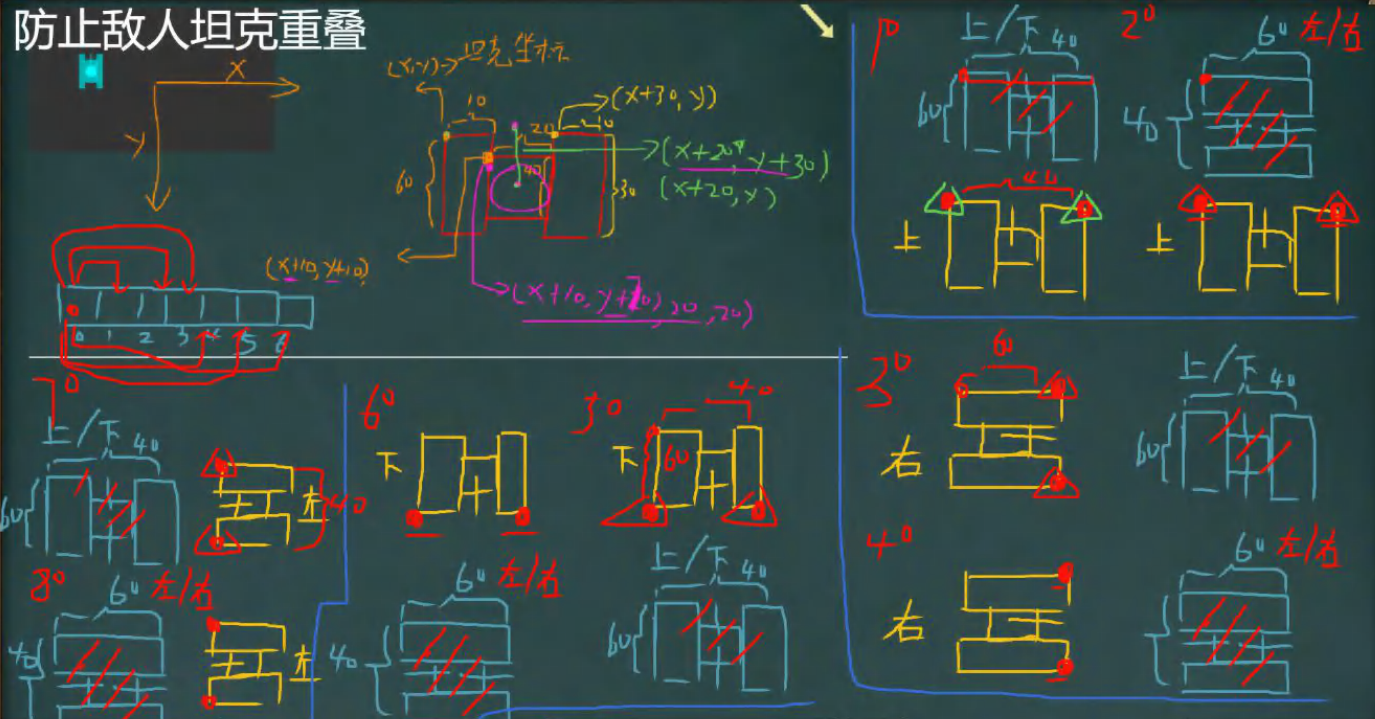 防止敌人坦克重叠
X
y
(x,y)→坦克坐标
10
20
10
(x+30, y)
60
40
30
(x+20, y+30)
(x+20, y)
(x+10, y+10)
(x+10, y+10), 20, 20)
0 1 2 3 4 5 6
1°
上/下 40
60
上
40
2°
60 左/右
40
上
3°
60
右
上/下 40
60
4°
右
60 左/右
40
下
60
上/下 40
60
6°
下
60 左/右
40
7°
上/下 40
60
左
40
8°
60 左/右
40
左